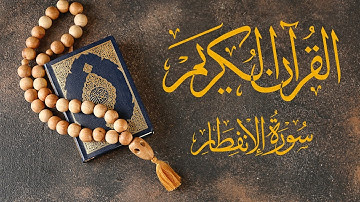 القرآن الكريم
سورة الانفطار